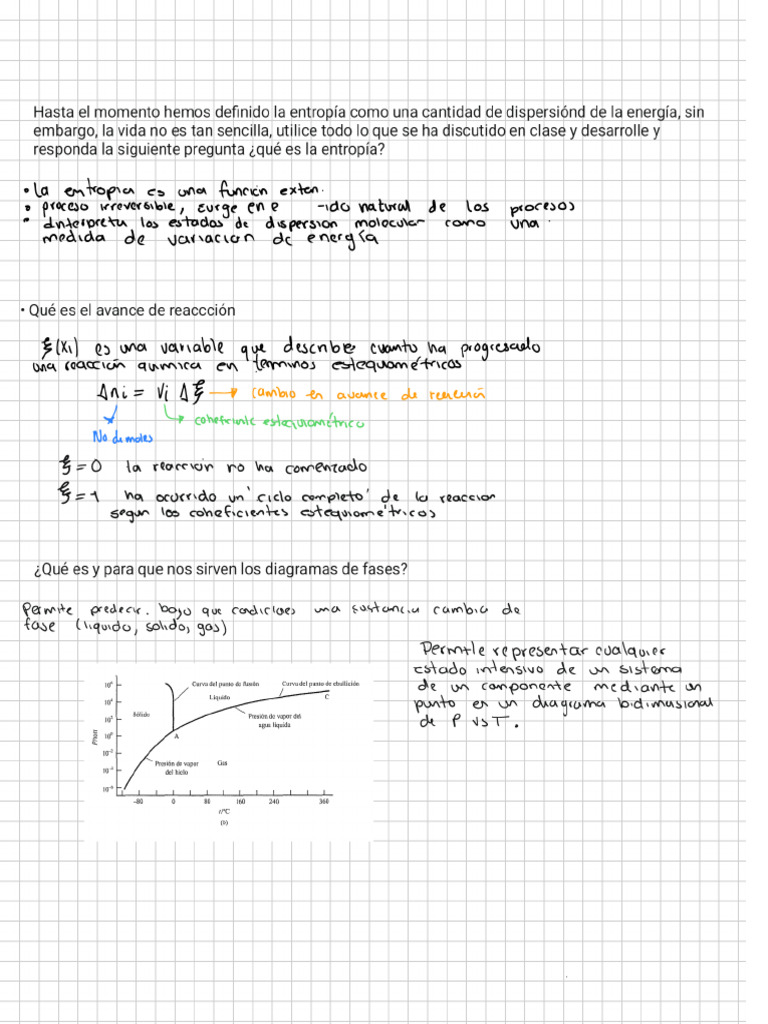 Hasta el momento hemos definido la entropía como una cantidad de dispersiónd de la energía, sin
embargo, la vida no es tan sencilla, utilice todo lo que se ha discutido en clase y desarrolle y
responda la siguiente pregunta ¿qué es la entropía?
• La entropia es una función exten.
• proceso irreversible, surge en e -ido natural de los procesos
• Interpreta los estados de dispersion molecular como una
medida de variacion de energía
• Qué es el avance de reaccción
ξ(Xi) es una variable que describe cuanto ha progresado
una reacción quimica en terminos estequiométricos
Δni = νi Δξ → cambio en avance de reacción
coheficiente estequiométrico
No de moles
ξ=0 la reacción no ha comenzado
ξ=1 ha ocurrido un 'ciclo completo' de la reaccion
segun los coheficientes estequiométricos
¿Qué es y para que nos sirven los diagramas de fases?
Permite predecir. bajo que condiciones una sustancia cambia de
fase (liquido, solido, gas)
Permite representar cualquier
estado intensivo de un sistema
de un componente mediante un
punto en un diagrama bidimusional
de P vs T.
Curva del punto de fusión
Curva del punto de ebullición
Líquido
C
Sólido
Presión de vapor del
agua líquida
A
Presión de vapor
del hielo
Gas
-80 0 80 160 240 360
t/°C
(b)